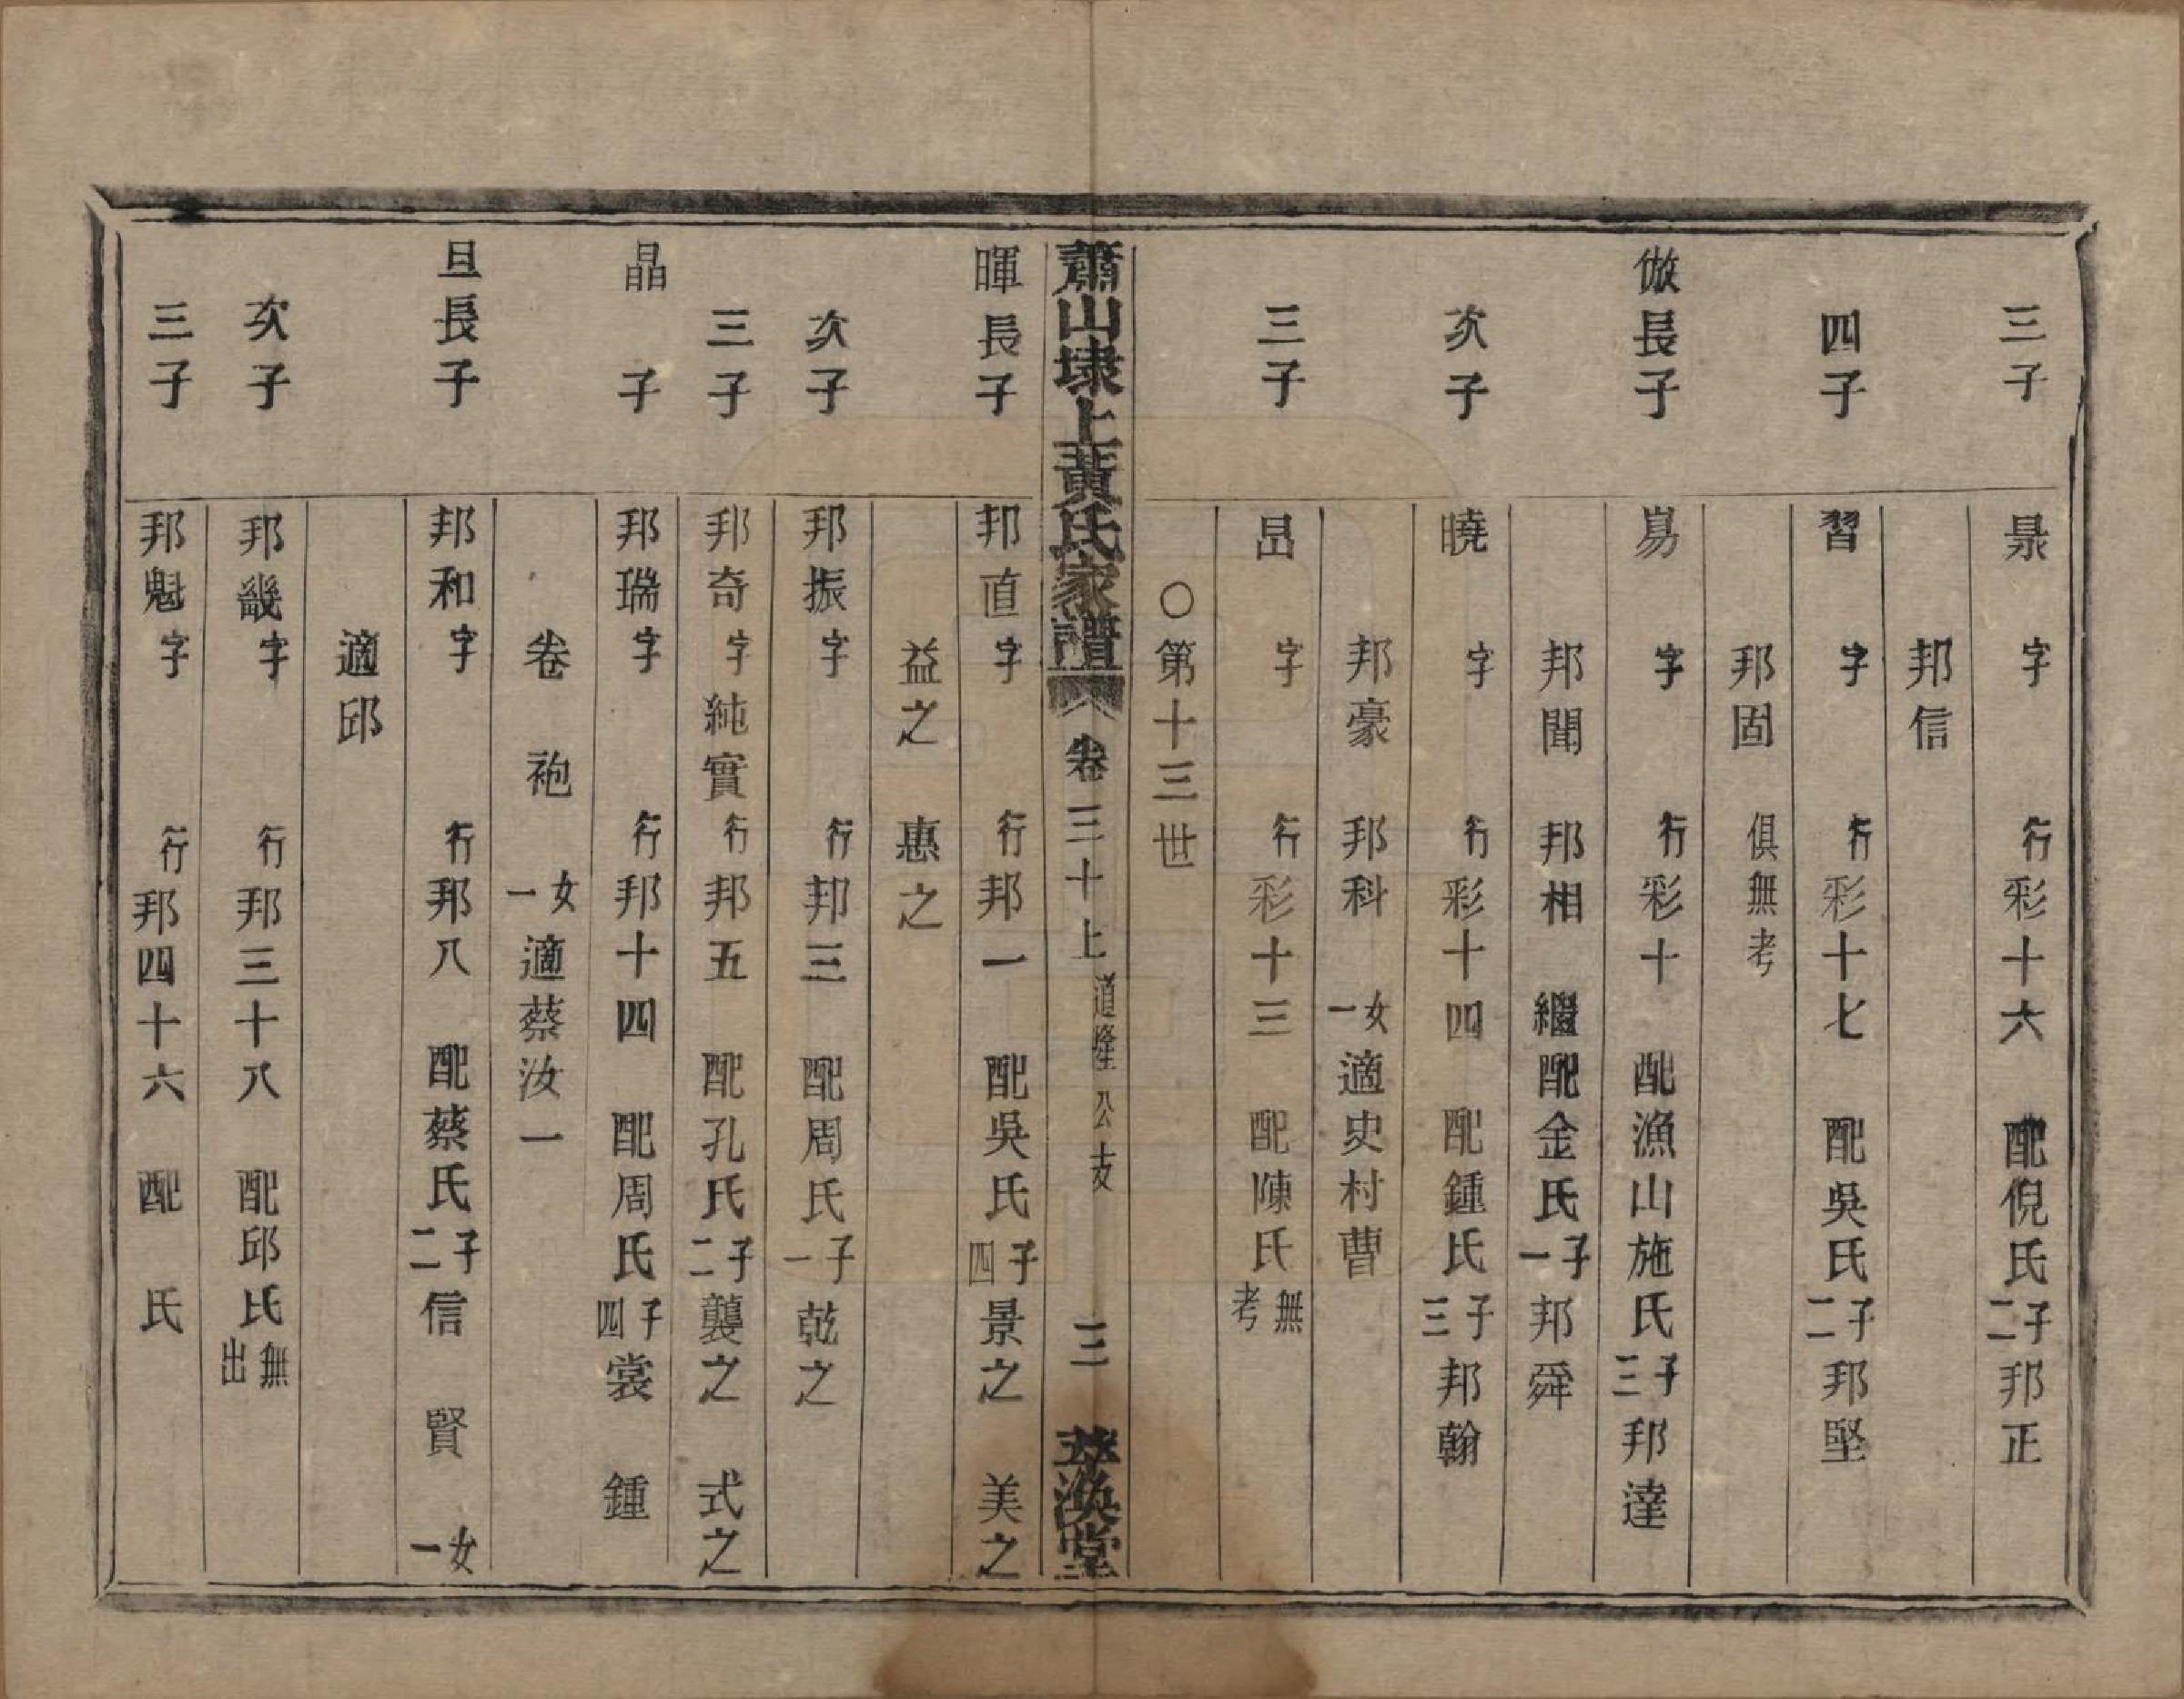 三子 晜 字 行彩十六 配倪氏 子二 邦正
邦信
四子 習 字 行彩十七 配吳氏 子二 邦堅
邦固 俱無考
倣長子 昜 字 行彩十 配漁山施氏 子三 邦達
邦聞 邦相 繼配金氏 子一 邦舜
次子 曉 字 行彩十四 配鍾氏 子三 邦翰
邦豪 邦科 女一 適史村曹
三子 字 行彩十三 配陳氏 無考
○第十三世
蕭山埭上黃氏家譜 卷三十上 道隆公支 三 萃渙堂
暉長子 邦直字 行邦一 配吳氏 子四 景之 美之
益之 惠之
次子 邦振字 行邦三 配周氏 子一 乾之
三子 邦奇字純實 行邦五 配孔氏 子二 襲之 式之
晶子 邦瑞字 行邦十四 配周氏 子四 裳 鍾
卷 袍 女一 適蔡汝一
旦長子 邦和字 行邦八 配蔡氏 子二 信 賢 女一
適邱
次子 邦畿字 行邦三十八 配邱氏 無出
三子 邦魁字 行邦四十六 配 氏